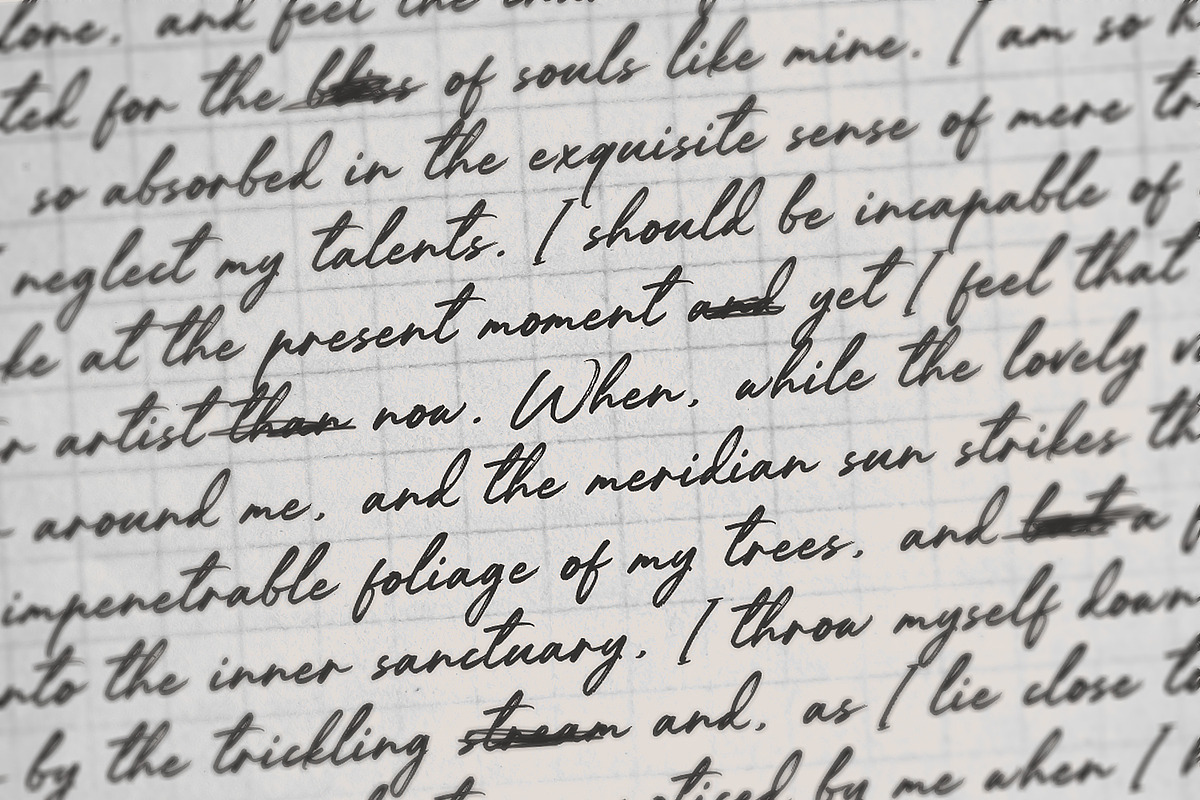 lone, and feel the
ted for the bliss of souls like mine. I am so
so absorbed in the exquisite sense of mere tr
neglect my talents. I should be incapable of
ke at the present moment and yet I feel that
r artist than now. When, while the lovely v
around me, and the meridian sun strikes th
impenetrable foliage of my trees, and but a
nto the inner sanctuary, I throw myself down
by the trickling stream and, as I lie close to
by me when I